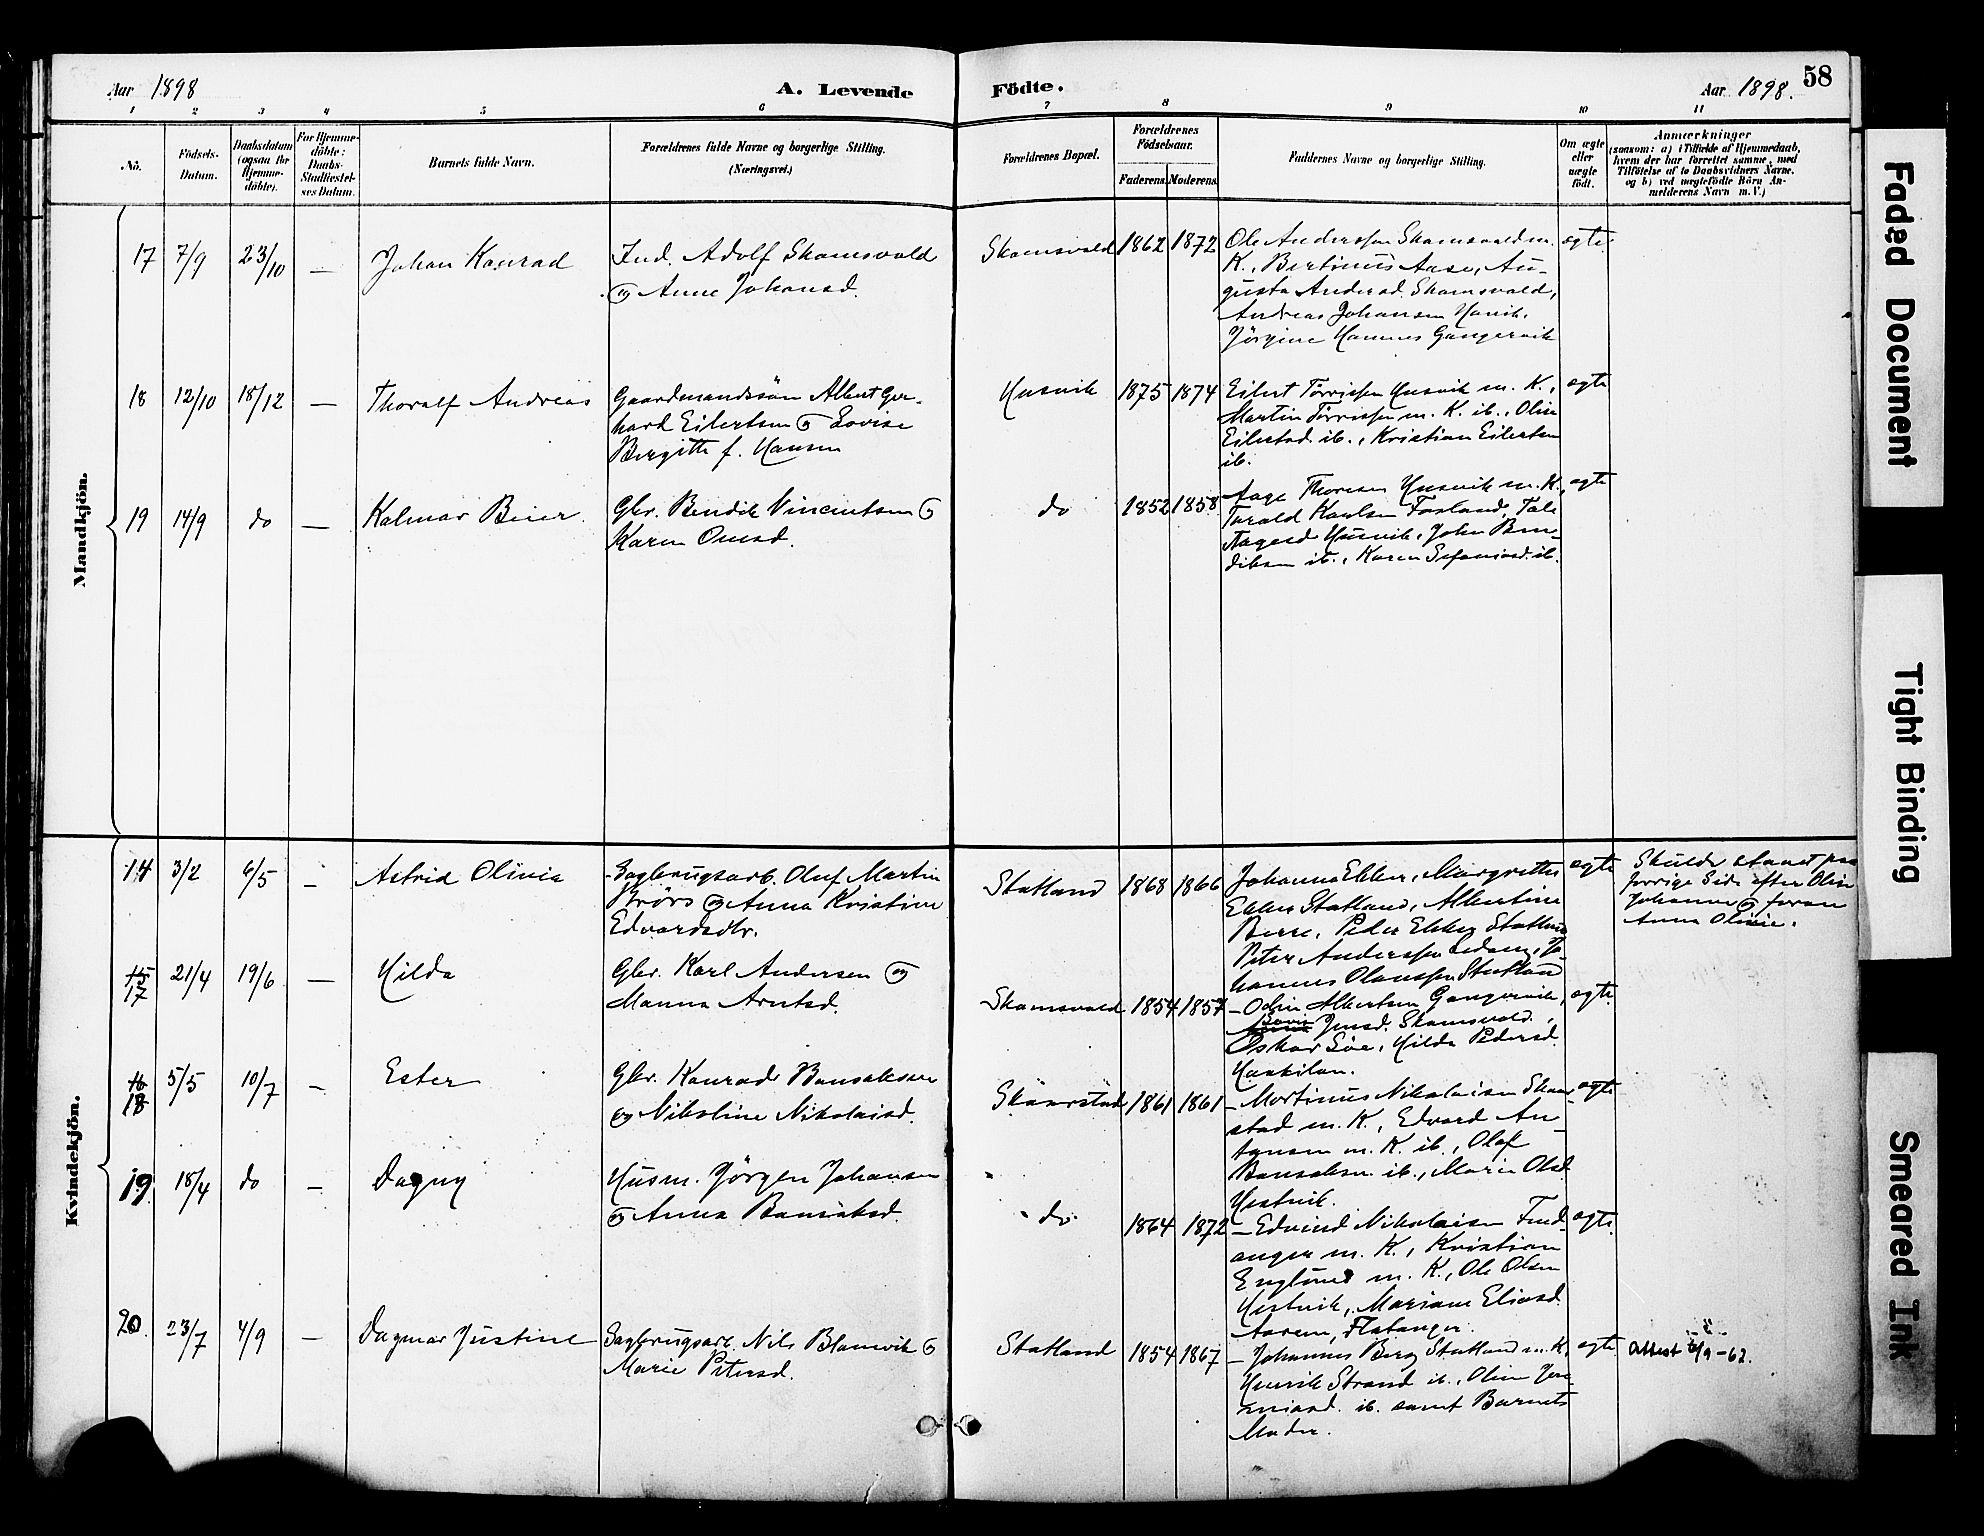 Aar 1898
A. Levende
Födte.
Aar 1898.
58
1 2 3 4 5 6 7 8 9 10 11
No.
Födsels-
Datum.
Daabsdatum
(ogsaa for
Hjemme-
döbte).
For Hjemme-
döbte:
Daabs-
Stadfæstel-
ses Datum.
Barnets fulde Navn.
Forældrenes fulde Navne og borgerlige Stilling.
(Næringsvei.)
Forældrenes Bopæl.
Forældrenes
Födselsaar.
Faderens. Moderens.
Faddernes Navne og borgerlige Stilling.
Om ægte
eller
uægte
födt.
Anmærkninger
(saasom: a) i Tilfælde af Hjemmedaab,
hvem der har forrettet samme, med
Tilföielse af to Daabsvidners Navne,
og b) ved uægtefödte Börn An-
melderens Navn m. V.)
Mandkjön.
17 7/9 23/10 — Johan Konrad
Ind. Adolf Skamsvold
og Anne Johansd.
Skamsvold 1862 1872
Ole Anderssen Skamsvold m.
K., Bertinus Aase, Au-
gusta Andersd. Skamsvold,
Andreas Johansen
Jörgine Hannes Gangervik
ægte
18 12/10 18/12 — Thoralf Andreas
Gaardmandssön Albert Ger-
hard Eilertsen og Lovise
Bergitte f. Hansen
Husvik 1875 1874
Eilert Törrissen Husvik m. K.,
Martin Törrissen m. K. ib., Oline
Eilertsd. ib., Kristian Eilertsen
ib.
ægte
19 14/9 do — Kalmar Beier.
Gbr. Bendik Vincentsen og
Karen Omsd.
do 1852 1858
Aage Thoresen Husvik m. K.,
Torald Karlsen Fosland, Tale
Aagesd Husvik, John Ben-
diksen ib., Karen Sefaniasd. ib.
ægte
Kvindekjön.
14 3/2 6/5 — Astrid Olivie
Sagbrugsarb. Oluf Martin
Brörs og Anna Kristine
Edvardsdtr.
Statland 1868 1866
Johanna Ekker, Margrethe
Ekker Statland, Albertine
Berre, Peder Ekker Statland
Peter Anderssen Ledang, Jo-
hannes Olaussen Statland
ægte
Skulde staaet paa
forrige Side efter Oline
Johanne og foran
Anna Olivie.
15
17 21/4 19/6 — Hilda
Gbr. Karl Andersen og
Manna Arntsd.
Skamsvold 1854 1857
— Odin Albertsen Gangervik,
Jensd. Skamsvold,
Oskar Löe, Hilda Pedersd.
ægte.
16
18 5/5 10/7 — Ester
Gbr. Konrad Bonsaksen
og Nikoline Nikolaisd.
Skaarstad 1861 1861
— Martinus Nikolaisen Skaar-
stad m. K., Edvard An-
tonsen m. K. ib., Olaf
Bonsaksen ib., Marie Olsd.
Hestvik.
ægte
19. 18/4 do — Dagny
Husm. Jörgen Johansen
og Anna Bonsaksd.
do 1864 1872
— Edvind Nikolaisen Find-
anger m. K., Kristian
Englund m. K., Ole Olsen
Hestvik, Mariane Eliasd.
Aarem, Flatanger.
ægte.
20. 23/7 4/9 — Dagmar Justine
Sagbrugsarb. Nils Blomvik og
Marie Petersd.
Statland 1854 1867
— Johannes Berg Statland m. K,
Henrik Strand ib., Oline Jere-
miasd. ib. samt Barnets
Moder.
ægte
Attest /9-62.
Faded Document
Tight Binding
Smeared Ink